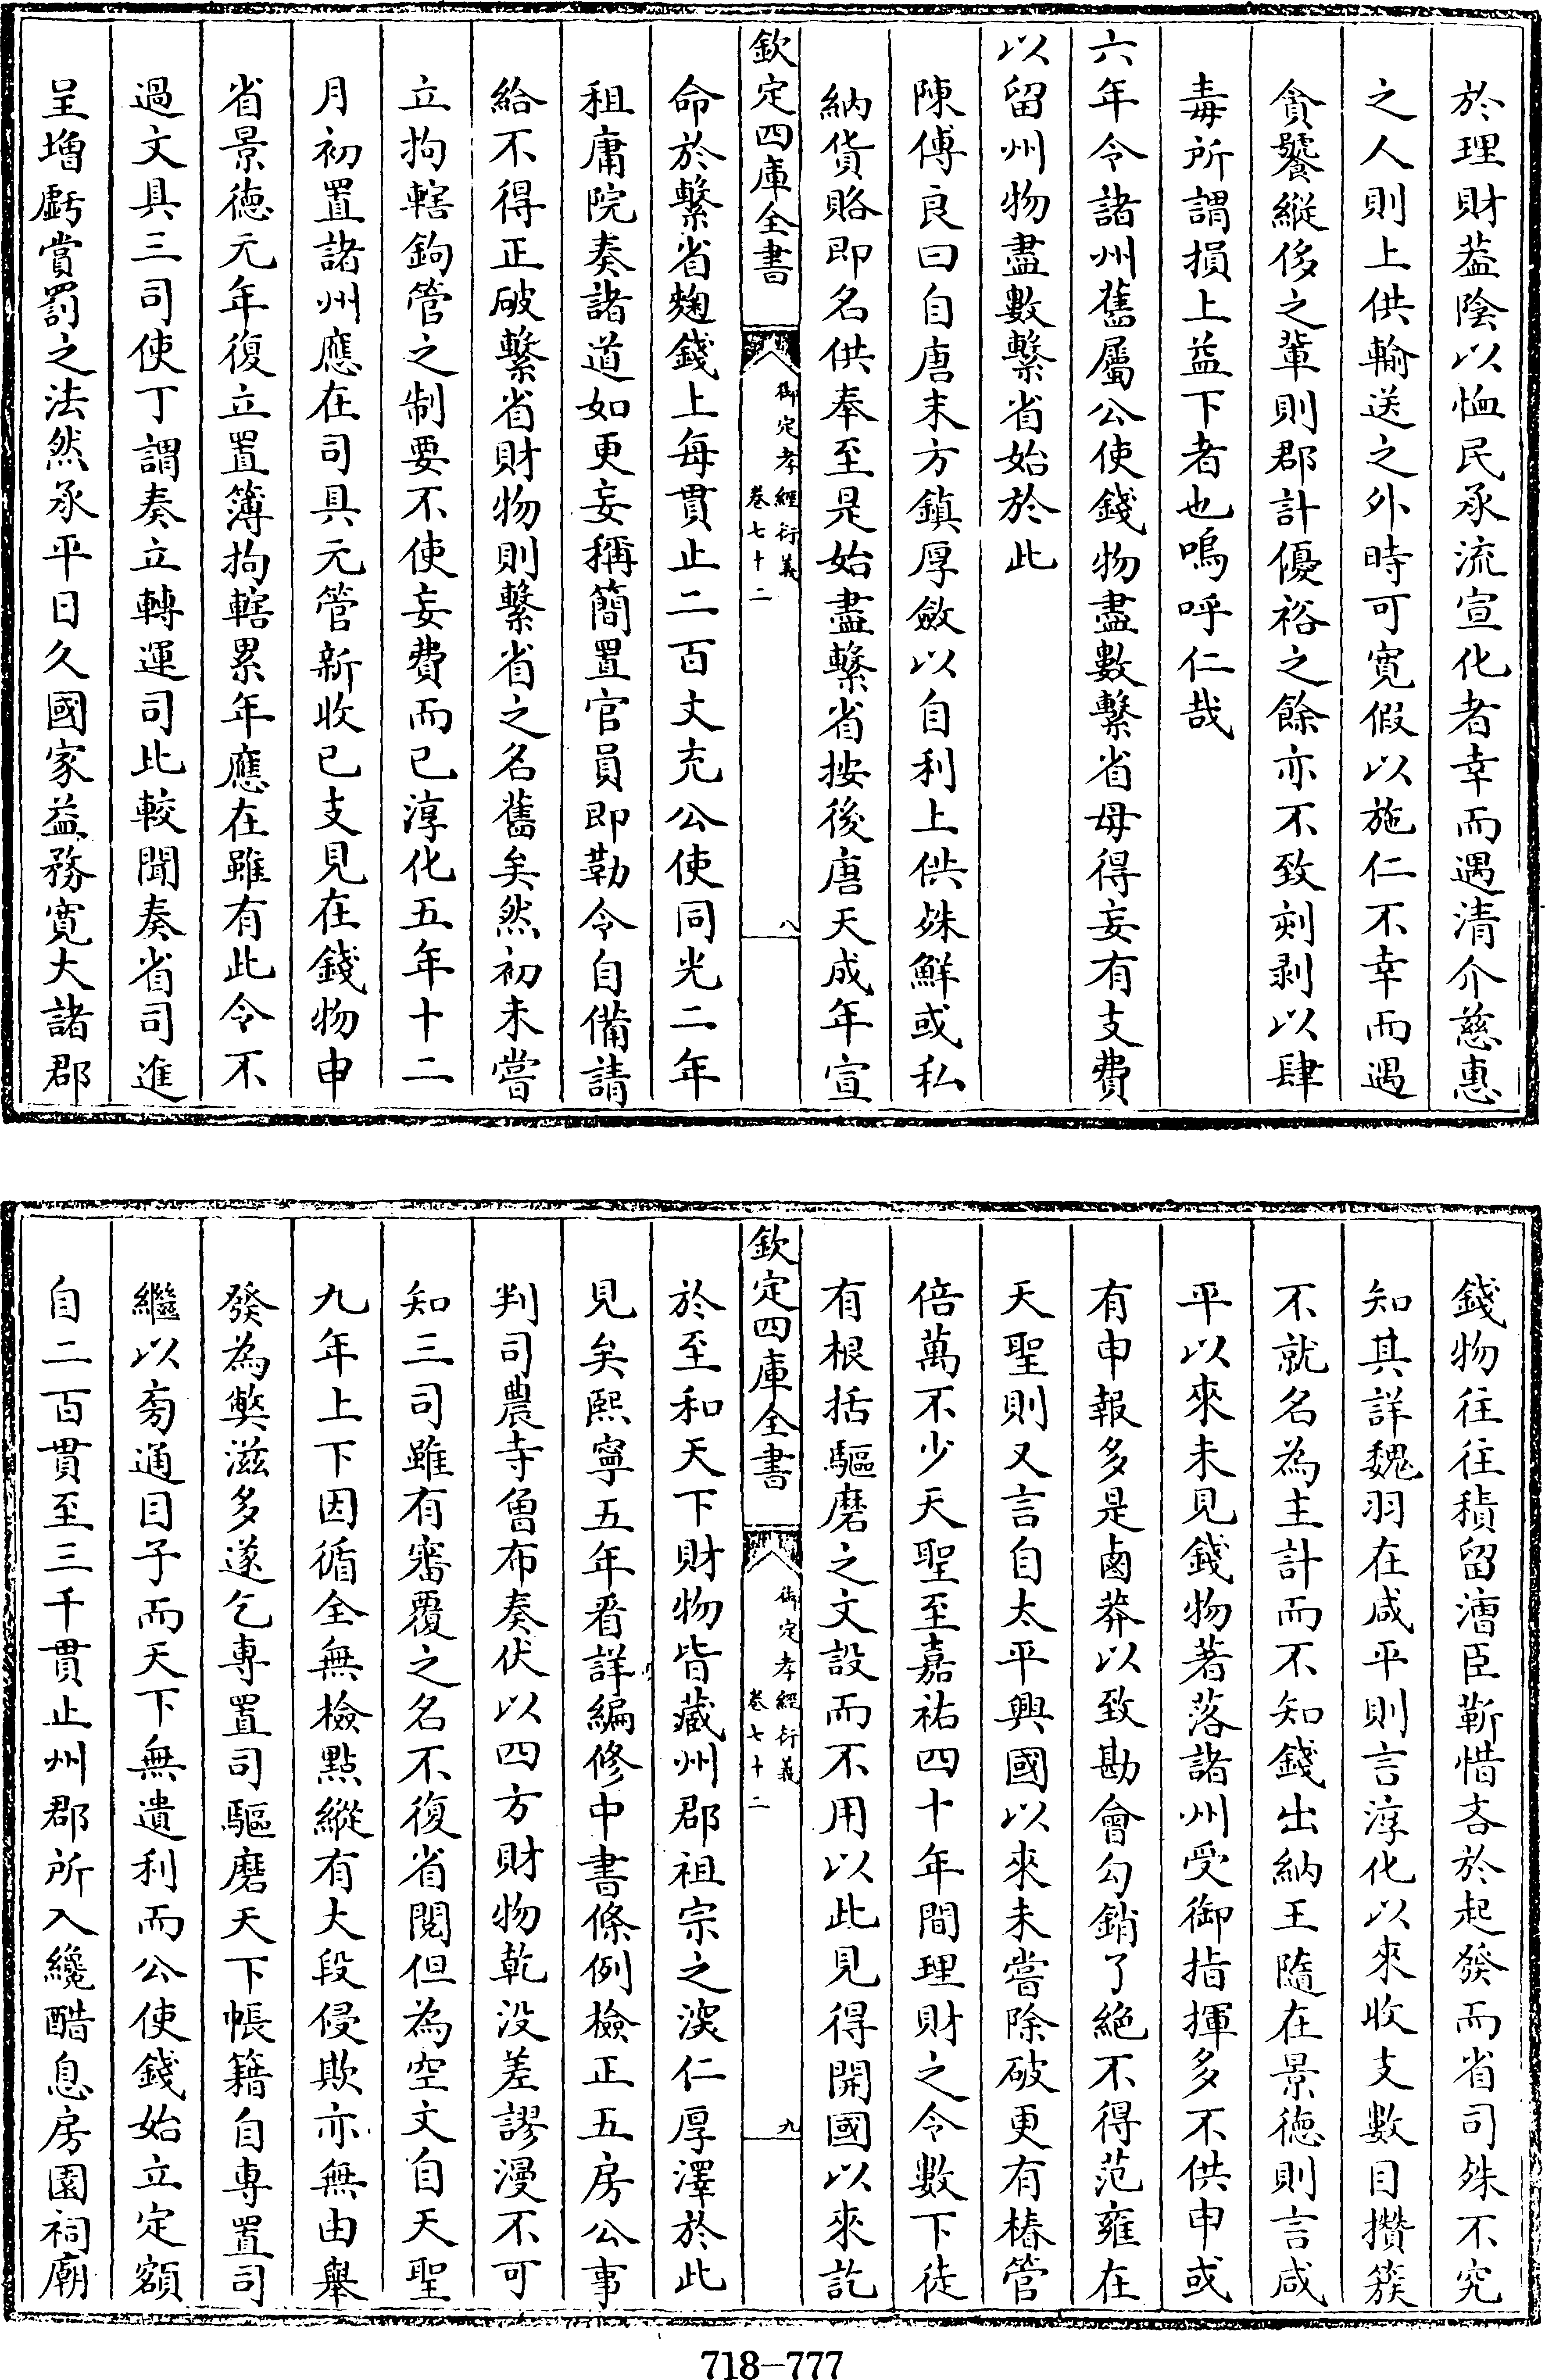 於理財葢陰以恤民承流宣化者幸而遇清介慈惠
之人則上供輸送之外時可寛假以施仁不幸而遇
貪饕縱侈之輩則郡計優裕之餘亦不致剜剥以肆
毒所謂損上益下者也嗚呼仁哉
六年令諸州舊屬公使錢物盡數繫省毋得妄有支費
以留州物盡數繫省始於此
陳傅良曰自唐末方鎮厚斂以自利上供殊鮮或私
納貨賂即名供奉至是始盡繫省按後唐天成年宣
欽定四庫全書
御定孝經衍義
卷七十二
八
命於繫省麴錢上每貫止二百文充公使同光二年
租庸院奏諸道如更妄稱簡置官員即勒令自備請
給不得正破繫省財物則繫省之名舊矣然初未嘗
立拘轄鉤管之制要不使妄費而已淳化五年十二
月初置諸州應在司具元管新收已支見在錢物申
省景徳元年復立置簿拘轄累年應在雖有此令不
過文具三司使丁謂奏立轉運司比較聞奏省司進
呈增虧賞罰之法然承平日久國家益務寛大諸郡
錢物往往積留漕臣靳惜吝於起發而省司殊不究
知其詳魏羽在咸平則言淳化以來收支數目攢簇
不就名為主計而不知錢出納王隨在景徳則言咸
平以來未見錢物著落諸州受御指揮多不供申或
有申報多是鹵莽以致勘會勾銷了絶不得范雍在
天聖則又言自太平興國以來未嘗除破更有樁管
倍萬不少天聖至嘉祐四十年間理財之令數下徒
有根括驅磨之文設而不用以此見得開國以來訖
欽定四庫全書
御定孝經衍義
卷七十二
九
於至和天下財物皆藏州郡祖宗之深仁厚澤於此
見矣熙寧五年看詳編修中書條例檢正五房公事
判司農寺曾布奏伏以四方財物乾没差謬漫不可
知三司雖有審覆之名不復省閲但為空文自天聖
九年上下因循全無檢點縱有大段侵欺亦無由舉
發為弊滋多遂乞專置司驅磨天下帳籍自專置司
繼以旁通目子而天下無遺利而公使錢始立定額
自二百貫至三千貫止州郡所入纔醋息房園祠廟
718-777